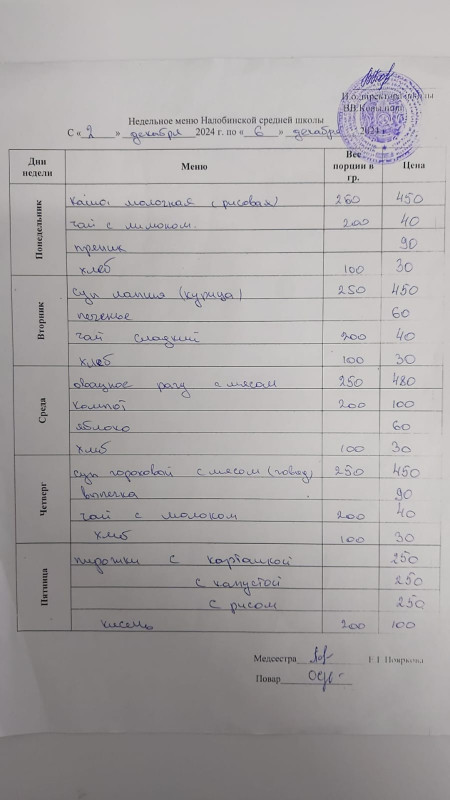 И.о.директора школы
Недельное меню Налобинской средней школы
С « 2 » декабря 2024 г. по « 6 » декабря 2024 г
Дни недели Меню Вес порции в гр. Цена
Понедельник
Каша молочная (рисовая) 250 450
чай с лимоном. 200 40
пряник 90
хлеб 100 30
Вторник
суп лапша (курица) 250 450
печенье 60
чай сладкий 200 40
хлеб 100 30
Среда
овощное рагу с мясом 250 480
компот 200 100
яблоко 60
хлеб 100 30
Четверг
суп гороховой с мясом (говяд) 250 450
выпечка 90
чай с молоком 200 40
хлеб 100 30
Пятница
пирожки с картошкой 250
с капустой 250
с рисом 250
кисель 200 100
Медсестра
Повар